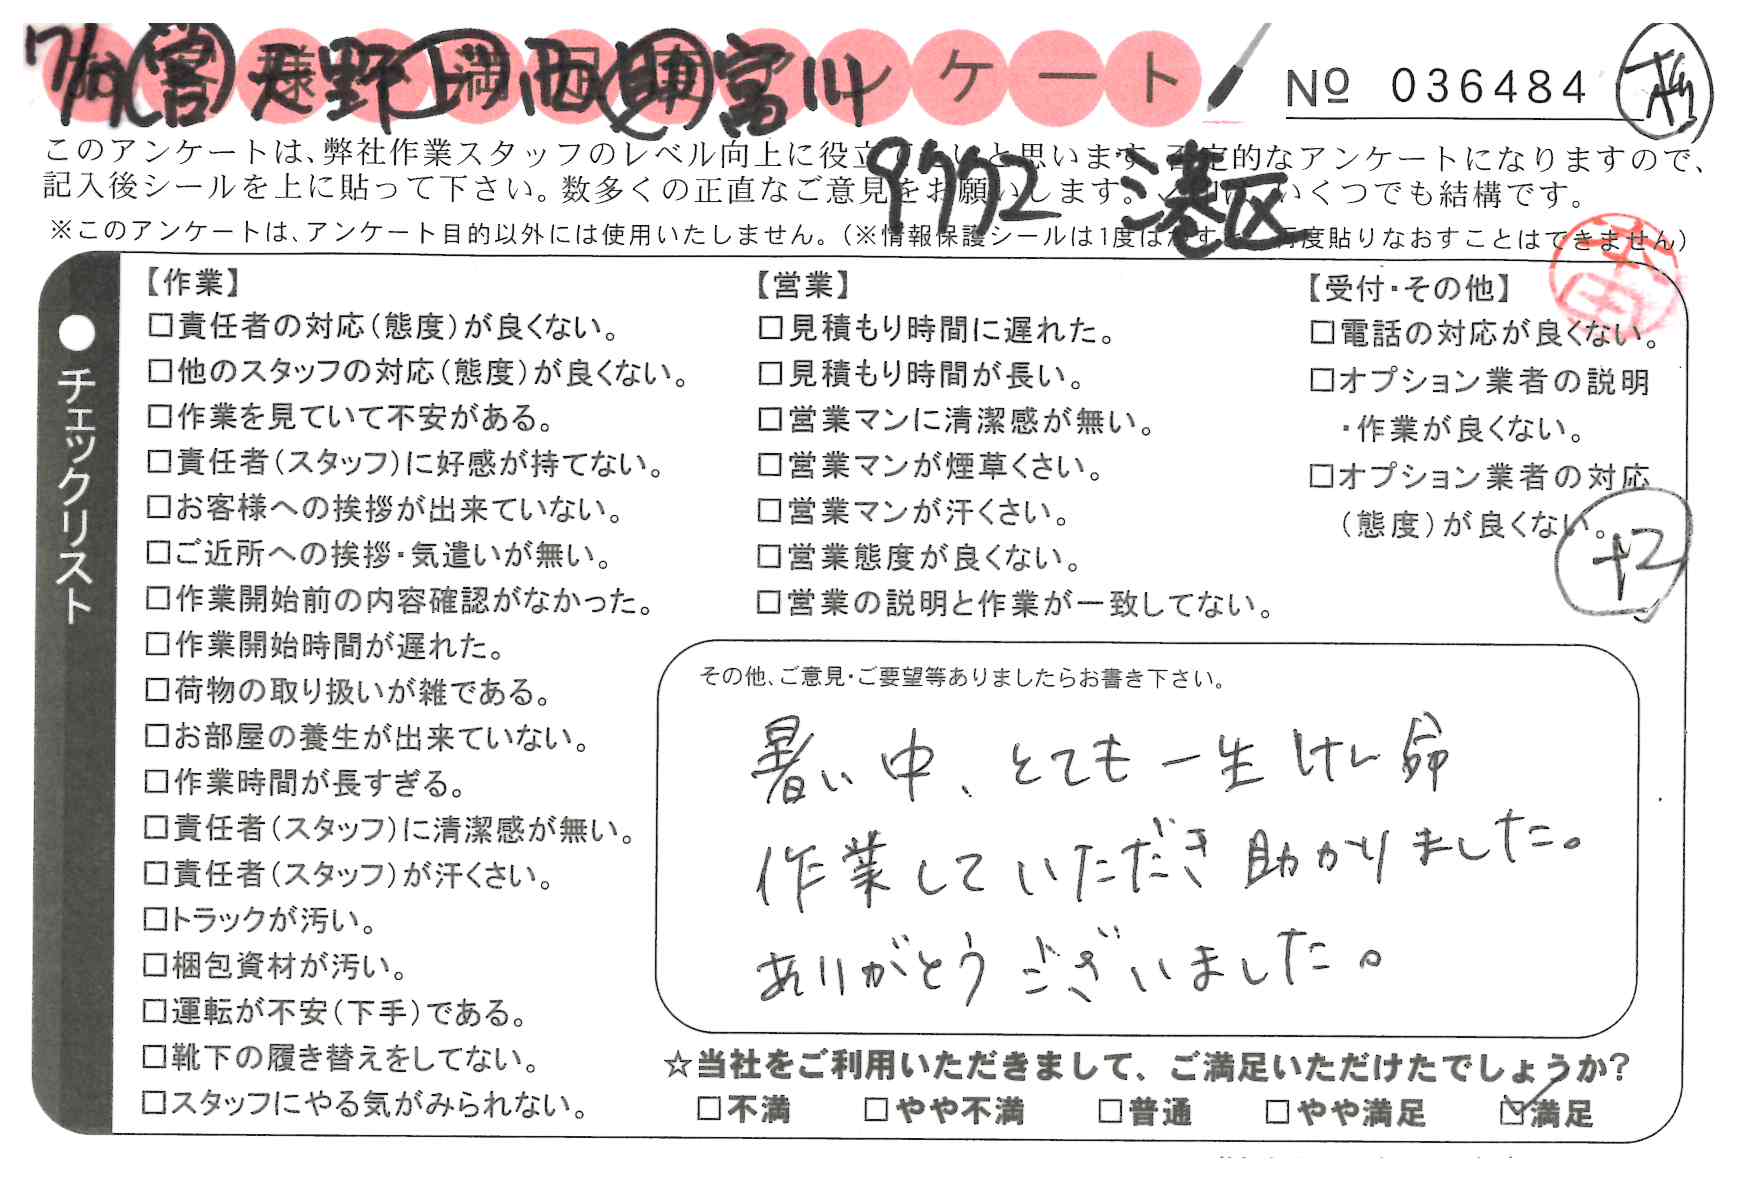 ケート
№ 036484
このアンケートは、弊社作業スタッフのレベル向上に役立 と思います。 定的なアンケートになりますので、
記入後シールを上に貼って下さい。数多くの正直なご意見をお願いします。 いくつでも結構です。
9772 港区
※このアンケートは、アンケート目的以外には使用いたしません。（※情報保護シールは1度はがすと 再度貼りなおすことはできません）
●チェックリスト
【作業】
□責任者の対応（態度）が良くない。
□他のスタッフの対応（態度）が良くない。
□作業を見ていて不安がある。
□責任者（スタッフ）に好感が持てない。
□お客様への挨拶が出来ていない。
□ご近所への挨拶・気遣いが無い。
□作業開始前の内容確認がなかった。
□作業開始時間が遅れた。
□荷物の取り扱いが雑である。
□お部屋の養生が出来ていない。
□作業時間が長すぎる。
□責任者（スタッフ）に清潔感が無い。
□責任者（スタッフ）が汗くさい。
□トラックが汚い。
□梱包資材が汚い。
□運転が不安（下手）である。
□靴下の履き替えをしてない。
□スタッフにやる気がみられない。
【営業】
□見積もり時間に遅れた。
□見積もり時間が長い。
□営業マンに清潔感が無い。
□営業マンが煙草くさい。
□営業マンが汗くさい。
□営業態度が良くない。
□営業の説明と作業が一致してない。
【受付・その他】
□電話の対応が良くない。
□オプション業者の説明
・作業が良くない。
□オプション業者の対応
（態度）が良くない。
+2
その他、ご意見・ご要望等ありましたらお書き下さい。
暑い中、とても一生けん命
作業していただき助かりました。
ありがとうございました。
☆当社をご利用いただきまして、ご満足いただけたでしょうか?
□不満 □やや不満 □普通 □やや満足 ☑満足